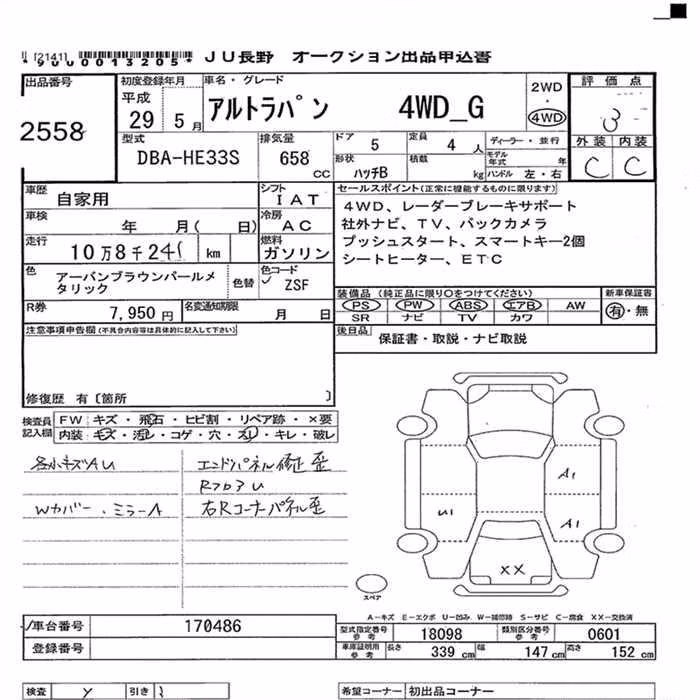 [2141]
*9000013205* JU長野 オークション出品申込書
出品番号
2558
初度登録年月
平成
29 5月
車名・グレード
アルトラパン 4WD_G
2WD
4WD
評価点
3
外装 内装
C C
型式
DBA-HE33S
排気量
658 CC
ドア 5
定員 4人
ディーラー・並行
形状 ハッチB
積載 kg
モデル年式 年
ハンドル 左・右
車歴 自家用
シフト IAT
車検 年 月( 日)
冷房 AC
走行 10万8千24 km
燃料 ガソリン
色 アーバンブラウンパールメタリック
色替
色コード ZSF
R券 7,950円
名変通知期限 月 日
セールスポイント(正常に機能するものに限ります)
4WD、レーダーブレーキサポート
社外ナビ、TV、バックカメラ
プッシュスタート、スマートキー2個
シートヒーター、ETC
装備品 (純正品に限り○をつけてください)
PS PW ABS エアB AW
SR ナビ TV カワ
新車保証書
有・無
後日品 保証書・取説・ナビ取説
注意事項申告欄(不具合内容等は具体的に記入して下さい)
修復歴 有〔箇所 〕
検査員記入欄
FW キズ・飛石・ヒビ割・リペア跡・×要
内装 キズ・汚レ・コゲ・穴・スレ・キレ・破レ
各小キズAU エンドパネル修正歪
RフロアU
Wカバー・ミラーA 右Rコーナーパネル歪
A1
U1
A1
XX
スペア
A―キズ E―エクボ U―凹み W―補修跡 S―サビ C―腐食 XX―交換済
車台番号 170486
登録番号
型式指定番号 参考 18098
類別区分番号 参考 0601
車庫証明用 参考 長さ 339cm 幅 147cm 高さ 152cm
検査 Y 引き
希望コーナー 初出品コーナー